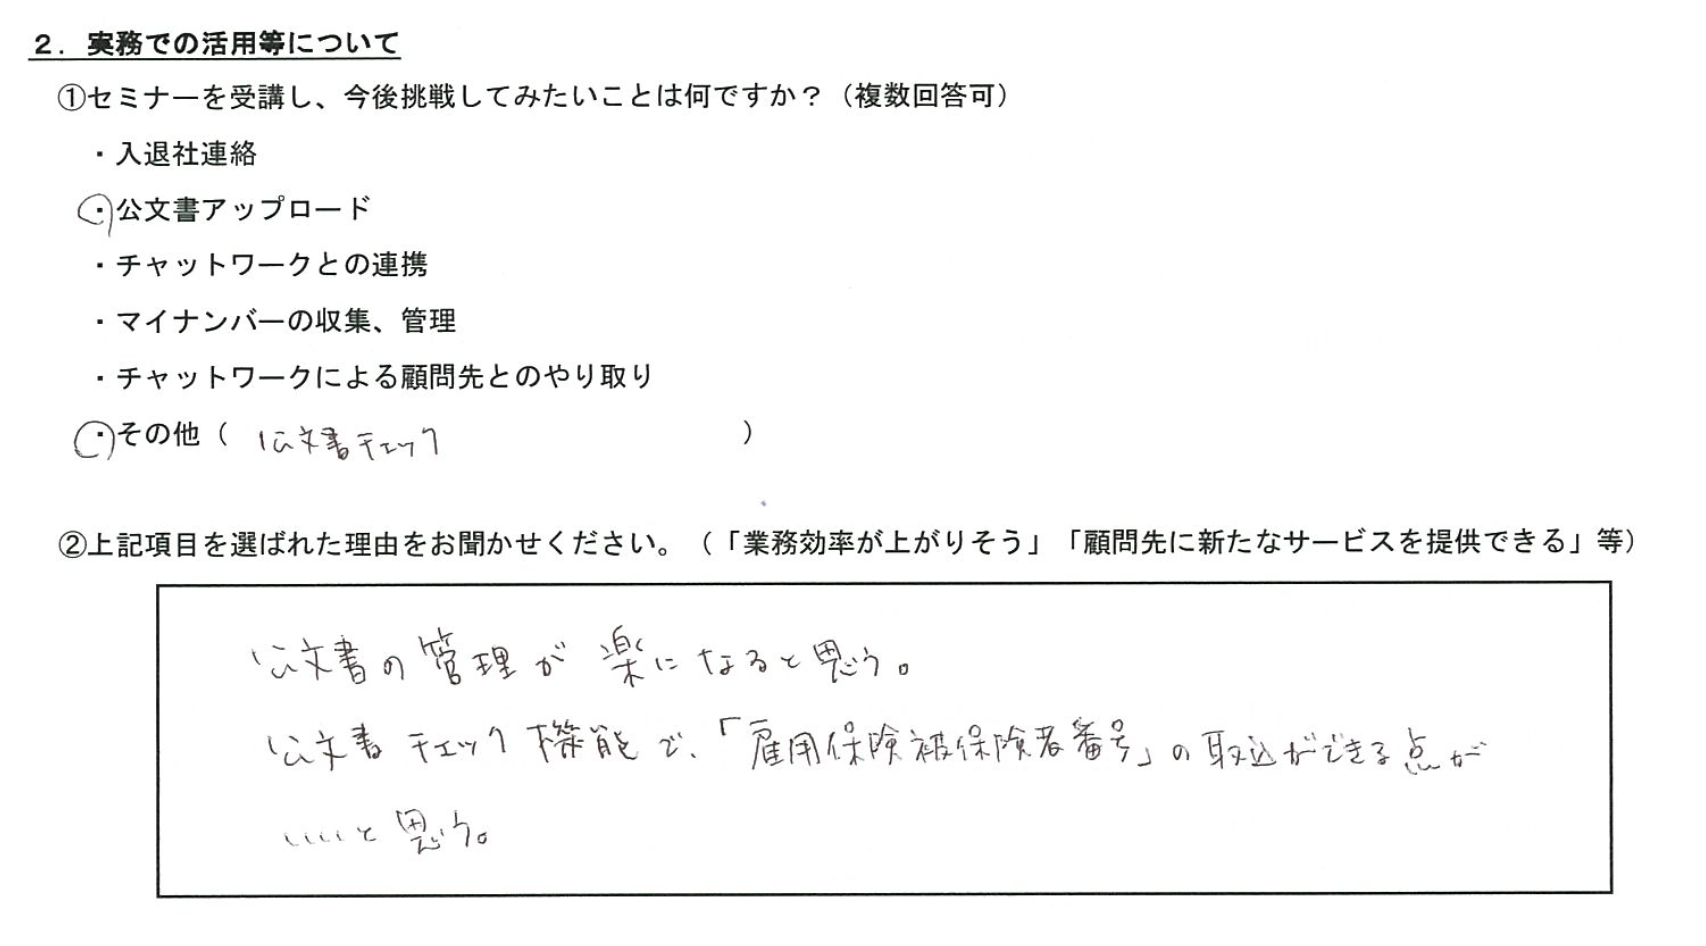 ２．実務での活用等について
①セミナーを受講し、今後挑戦してみたいことは何ですか？（複数回答可）
・入退社連絡
・公文書アップロード
・チャットワークとの連携
・マイナンバーの収集、管理
・チャットワークによる顧問先とのやり取り
・その他（ 公文書チェック ）
②上記項目を選ばれた理由をお聞かせください。（「業務効率が上がりそう」「顧問先に新たなサービスを提供できる」等）
公文書の管理が楽になると思う。
公文書チェック機能で、「雇用保険被保険者番号」の取込ができる点が
いいと思う。